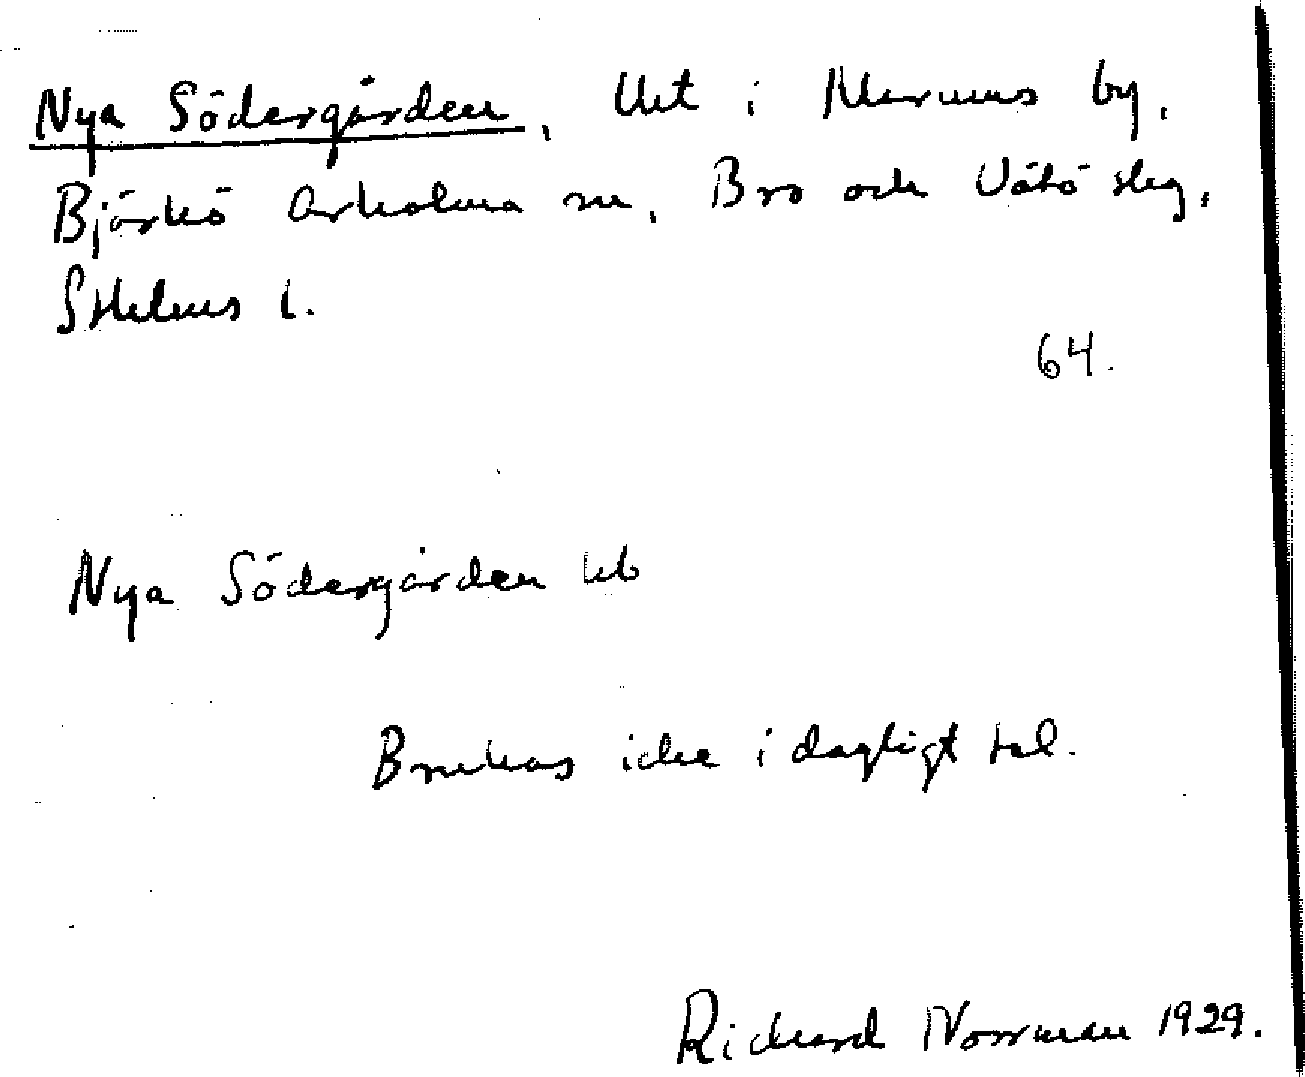 Nya Södergården, Utst i Marums by,
Björkö Arholma sn, Bro och Vätö skg,
Sthlms l.
64.
Nya Södergården
Brukas icke i dagligt tal.
Richard Norrman 1929.